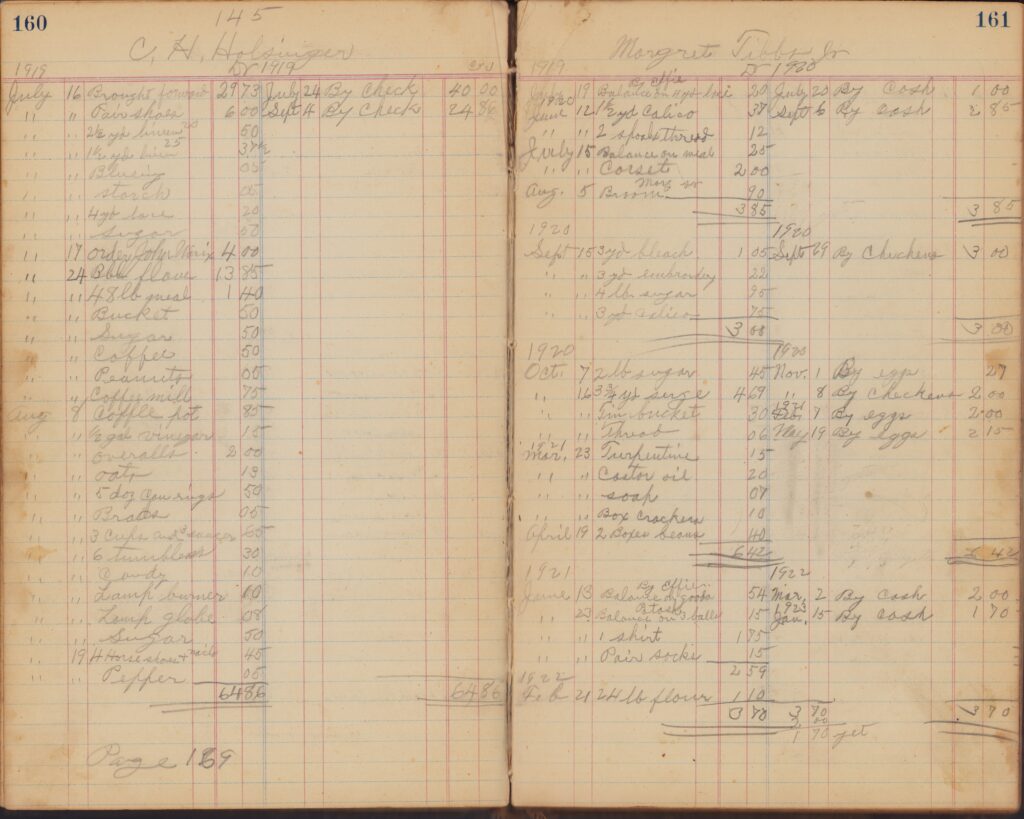 160
145
C. H. Holsinger
1919 Dr 1919 Cr
July 16 Brought forward 29 73 July 24 By Check 40 00
" " Pair shoes 6 00 Sept 4 By Check 24 86
" " 2½ yd linen 20 50
" " 1½ yd linen 25 37½
" " Blueing 05
" " starch 05
" " 4 yd lace 20
" " sugar 50
" 17 order John 4 00
" 24 Bbl flour 13 85
" " 48 lb meal 1 40
" " Bucket 50
" " Sugar 50
" " Coffee 50
" " Peanuts 05
" " Coffee mill 75
Aug 8 Coffee pot 85
" " ½ gal vinegar 15
" " overalls 2 00
" " oats 13
" " 5 doz Can rings 50
" " Brads 05
" " 3 Cups and 65
" " 6 tumblers 30
" " Candy 10
" " Lamp burner 10
" " Lamp globe 08
" " Sugar 50
" 19 4 Horse shoes + nails 45
" " Pepper 05
64 86 64 86
Page 169
161
Margret Tibbs Jr
1919 Dr 1920
19 By Effie Balance on 4 yd lace 20 July 20 By Cash 1 00
1920
June 12 1½ yd Calico 37 Sept 6 By Cash 2 85
" " 2 spools thread 12
July 15 Balance on meal 25
" " Corset 2 00
Aug. 5 Broom 90
3 85 3 85
1920 1920
Sept 15 3 yd bleach 1 05 Sept By Chickens 3 00
" " 3 yd embroidry 22
" " 4 lb sugar 95
" " 3 yd calico 75
3 00 3 00
1920 1920
Oct. 7 2 lb sugar 45 Nov. 1 By eggs 27
" 16 3¾ yd surge 4 69 " 8 By Checkens 2 00
1921
" " Tin bucket 30 7 By eggs 2 00
" " Thread 06 May 19 By eggs 2 15
1921
Mar. 23 Turpentine 15
" " Castor oil 20
" " soap 07
" " Box crackers 10
April 19 2 Boxes beans 40
6 42 6 42
1921 1922
June 13 By Effie Balance on goods 54 Mar. 2 By Cash 2 00
1923
" 23 Balance on 3 balls Potash 15 Jan. 15 By Cash 1 70
" " 1 shirt 1 75
" " Pair socks 15
2 59
1922
Feb 21 24 lb flour 1 10
3 70 3 70 3 70
2 00
1 70 yet